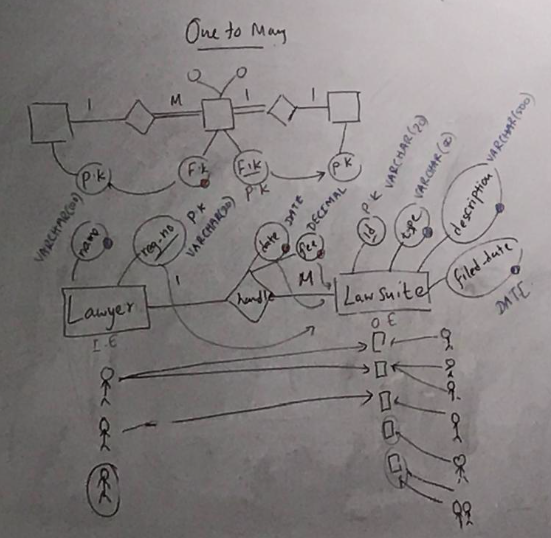 One to May
1
M
1
1
P.K
F.K
F.K
P.K
P.K
name
VARCHAR(
reg.no
P.K
VARCHAR(
date
DATE
fee
DECIMAL
id
P.K
VARCHAR(20)
type
VARCHAR(
description
VARCHAR(500)
filed-date
DATE
Lawyer
1
handle
M
Lawsuite
I.E
O E